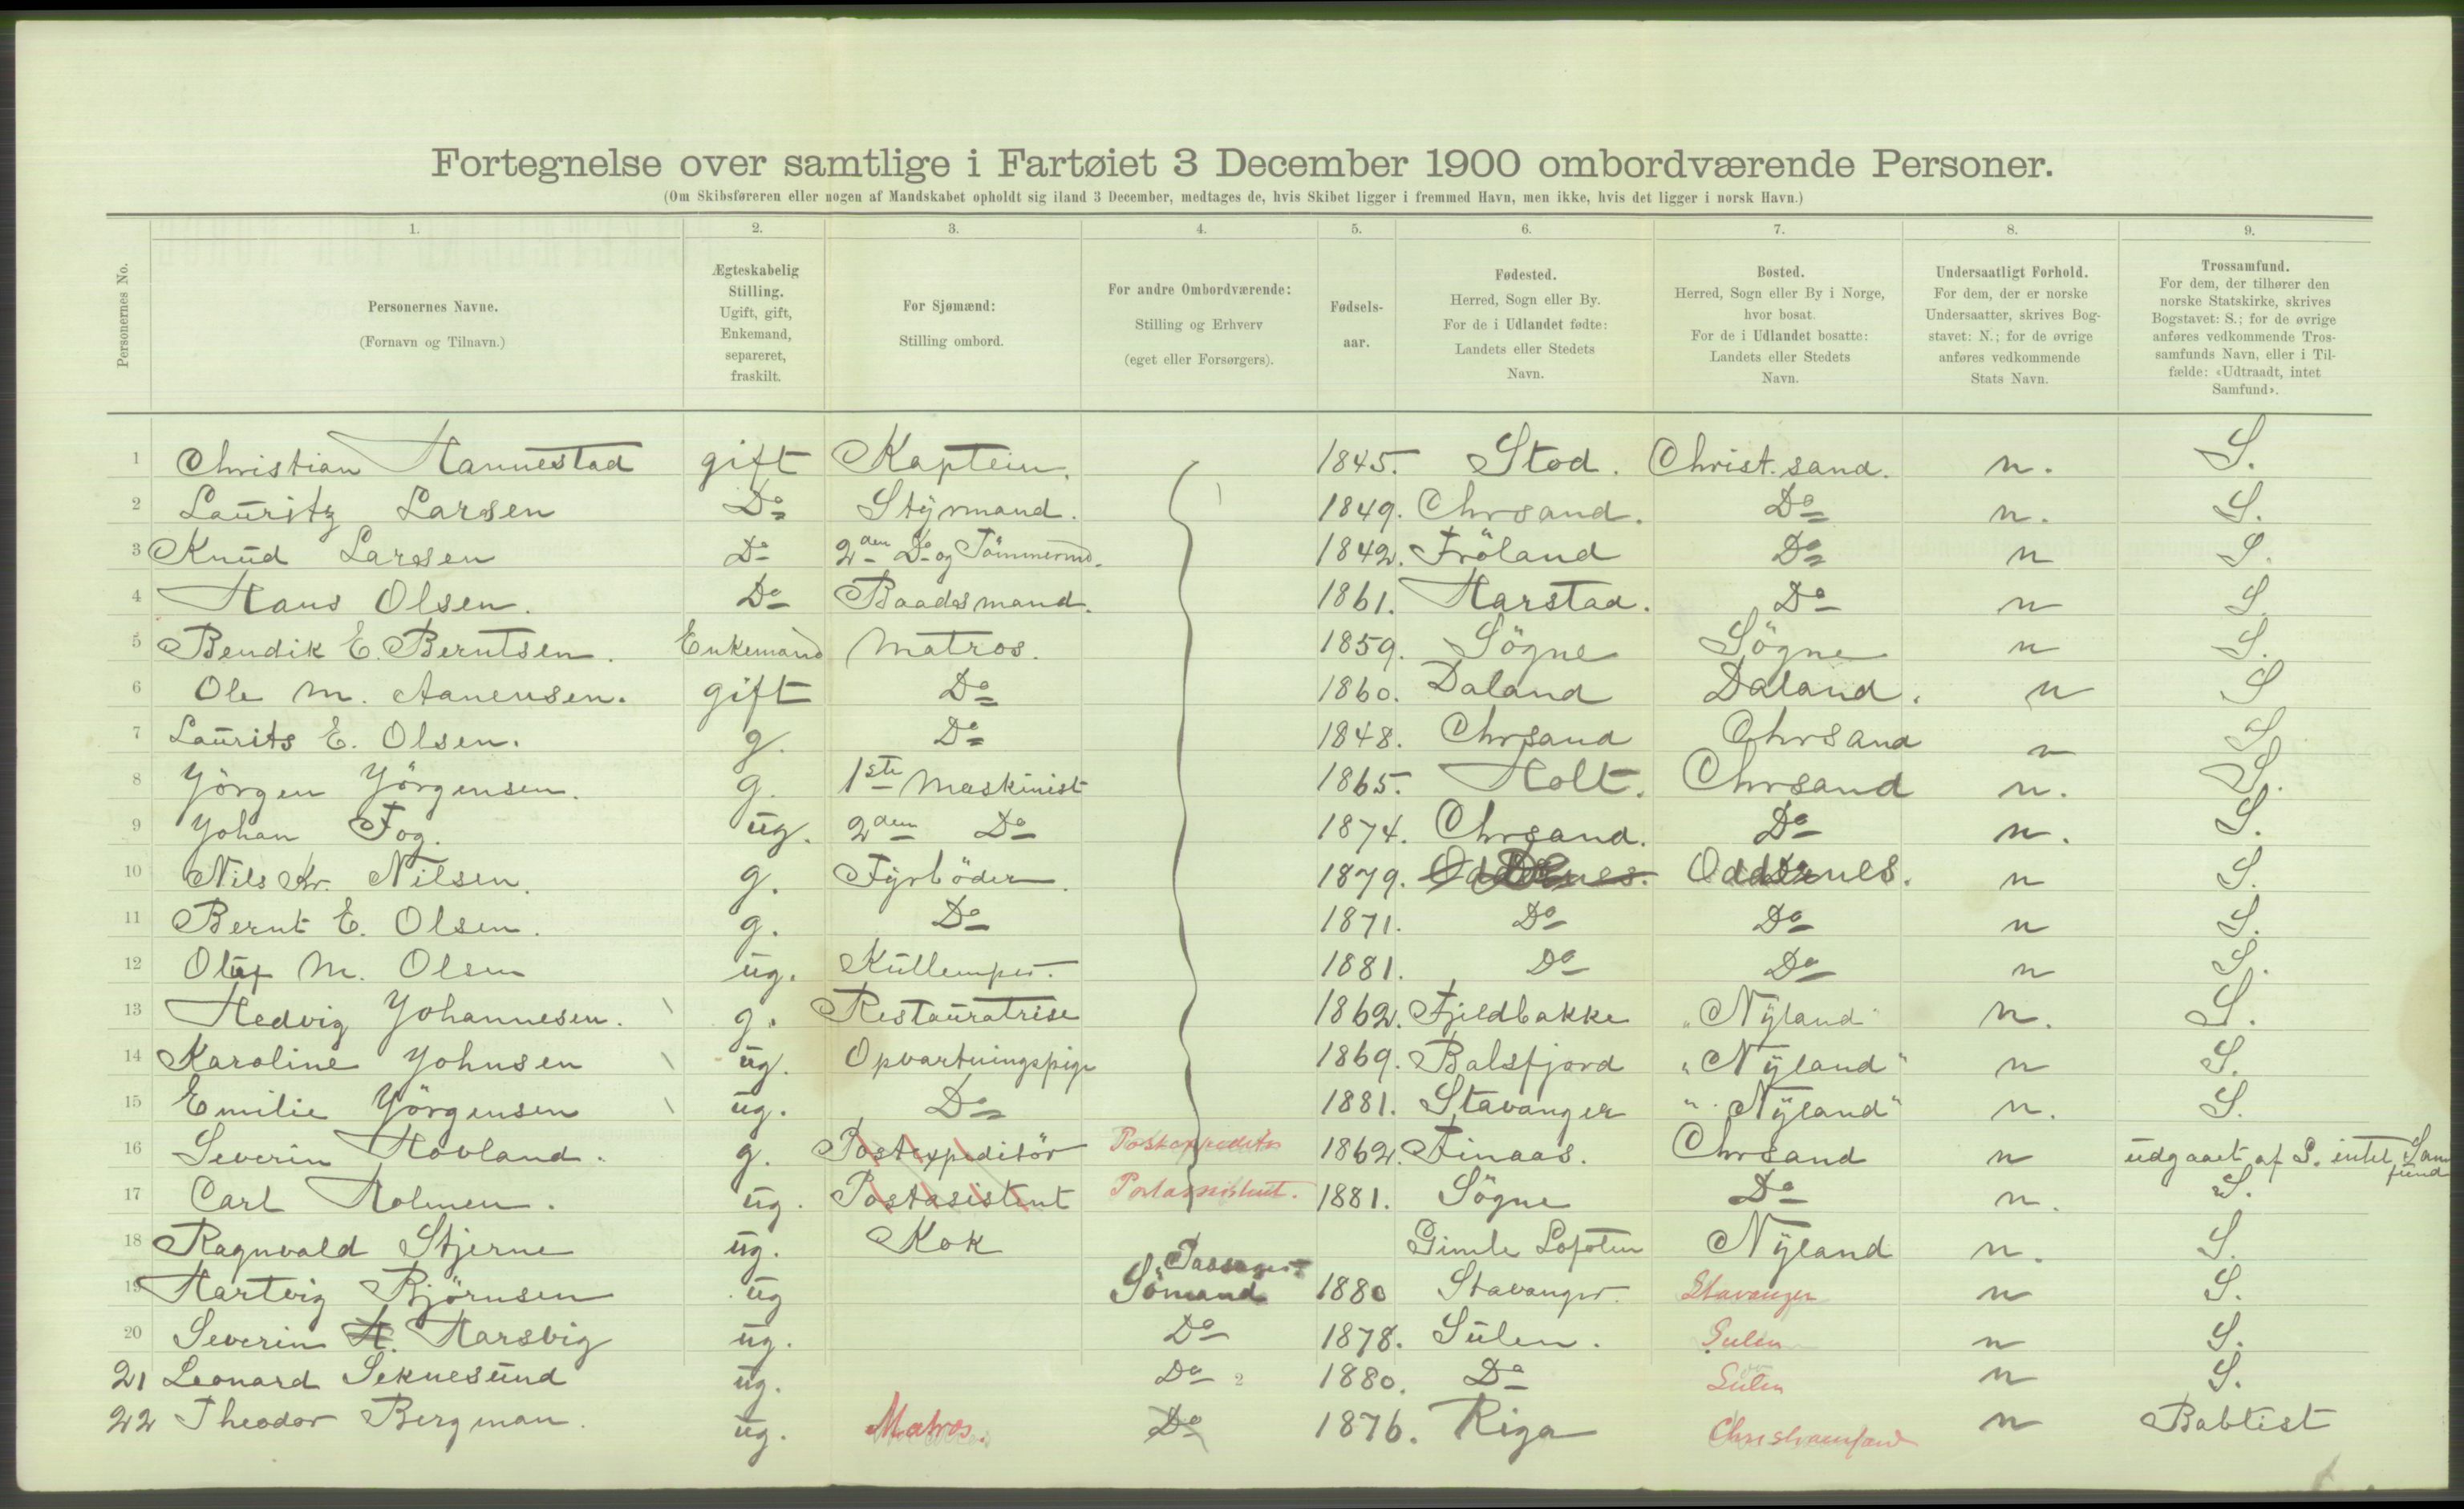 Fortegnelse over samtlige i Fartøiet 3 December 1900 ombordværende Personer.
(Om Skibsføreren eller nogen af Mandskabet opholdt sig iland 3 December, medtages de, hvis Skibet ligger i fremmed Havn, men ikke, hvis det ligger i norsk Havn.)
Personernes No.
1. 2. 3. 4. 5. 6. 7. 8. 9.
Personernes Navne.
(Fornavn og Tilnavn.)
Ægteskabelig
Stilling.
Ugift, gift,
Enkemand,
separeret,
fraskilt.
For Sjømænd:
Stilling ombord.
For andre Ombordværende:
Stilling og Erhverv
(eget eller Forsørgers).
Fødsels-
aar.
Fødested.
Herred, Sogn eller By.
For de i Udlandet fødte:
Landets eller Stedets
Navn.
Bosted.
Herred, Sogn eller By i Norge,
hvor bosat.
For de i Udlandet bosatte:
Landets eller Stedets
Navn.
Undersaatligt Forhold.
For dem, der er norske
Undersaatter, skrives Bog-
stavet: N.; for de øvrige
anføres vedkommende
Stats Navn.
Trossamfund.
For dem, der tilhører den
norske Statskirke, skrives
Bogstavet: S.; for de øvrige
anføres vedkommende Tros-
samfunds Navn, eller i Til-
fælde: «Udtraadt, intet
Samfund».
1 Christian Hannestad gift Kaptein. 1845. Stod. Christ.sand. n. S.
2 Lauritz Larsen Do Styrmand. 1849. Chrsand. Do n. S.
3 Knud Larsen Do 2den Do og Tömmermd. 1842. Fröland Do n S.
4 Hans Olsen. Do Baadsmand. 1861. Harstad. Do n S.
5 Bendik E. Berntsen. Enkemand Matros. 1859. Sögne Sögne n S.
6 Ole M. Aanensen. gift Do 1860. Daland Daland. n S
7 Laurits E. Olsen. g. Do 1848. Chrsand Chrsand n S.
8 Jörgen Jörgensen. g. 1ste Maskinist 1865. Holt. Chrsand n. S.
9 Johan Fog. ug. 2den Do 1874. Chrsand. Do n. S.
10 Nils Kr. Nilsen. g. Fyrböder. 1879. Oddernes. n S.
11 Bernt E. Olsen. g. Do 1871. Do Do n S.
12 Oluf M. Olsen ug. Kullemper. 1881. Do Do n S.
13 Hedvig Johannesen. g. Restauratrise 1862. Fjeldbakke "Nyland" n. S.
14 Karoline Johnsen ug. Opvartningspige 1869. Balsfjord "Nyland" n S.
15 Emilie Jörgensen ug. Do 1881. Stavanger "Nyland" n. S.
16 Severin Hovland. g. Postexpeditör Postexpeditör 1862. Finaas. Chrsand n udgaaet af S. intet Sam
fund
17 Carl Holmen. ug. Postasistent Postassistent. 1881. Sögne Do n. S.
18 Ragnvald Stjerne ug. Kok Gimle Lofoten Nyland n. S.
Passager
19 Hartvig Björnsen ug Sömand 1880 Stavanger. Stavanger n S.
20 Severin H. Harsvig ug. Do 1878. Sulen. Sulen n S.
21 Leonard Seknesund ug. Do 2 1880. Do Sulen n S.
22 Theodor Bergman. ug. Matros. Do 1876. Riga Christiansand n Babtist